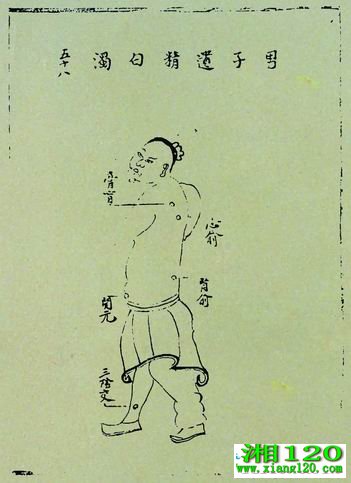 男子遺精白濁
五十八
膏肓
心俞
腎俞
關元
三陰交
湘120
www.xiang120.com